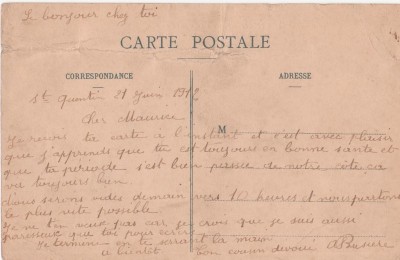 Le bonjour chez toi
CARTE POSTALE
CORRESPONDANCE
ADRESSE
St Quentin 21 Juin 1912
Cher Maurice
M
Je reçois ta carte à l'instant et c'est avec plaisir
que j'apprends que tu est toujours en bonne santé et
que ta période s'est bien passée de notre côté ça
va toujours bien
Nous serons vides demain vers 10 heures et nous partons
le plus vite possible
Je ne t'en veux pas car je crois que je suis aussi
paresseux que toi pour écrire
Je termine en te serrant la main
à bientôt
Ton cousin dévoué